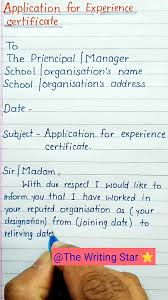 Application for Experience
certificate
To
The Priencipal / Manager
School / organisation's name
School / organisation's address
Date -
Subject - Application for experience
certificate.
Sir / Madam,
With due respect I would like to
inform you that I have worked in
your reputed organisation as (your
designation) from (joining date) to
relieving date
@The Writing Star ⭐